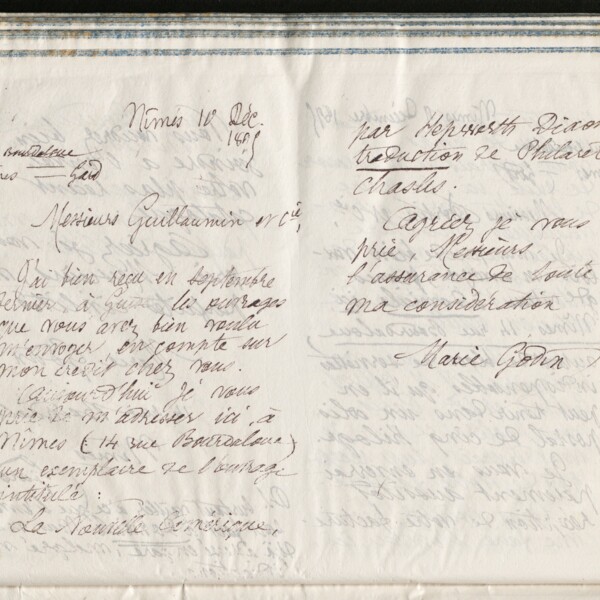 Nîmes 10 Déc.
Bourdaloue
Gard
Messieurs Guillaumin et Cie,
J'ai bien reçu en septembre
dernier à Guise les ouvrages
que vous avez bien voulu
m'envoyer en compte sur
mon crédit chez vous.
Aujourd'hui je vous
prie de m'adresser ici, à
Nîmes (14 rue Bourdaloue)
un exemplaire de l'ouvrage
intitulé :
La Nouvelle Amérique,
par Hepworth Dixon
traduction de Philarète
Chasles.
Agréez je vous
prie, Messieurs
l'assurance de toute
ma considération
Marie Godin